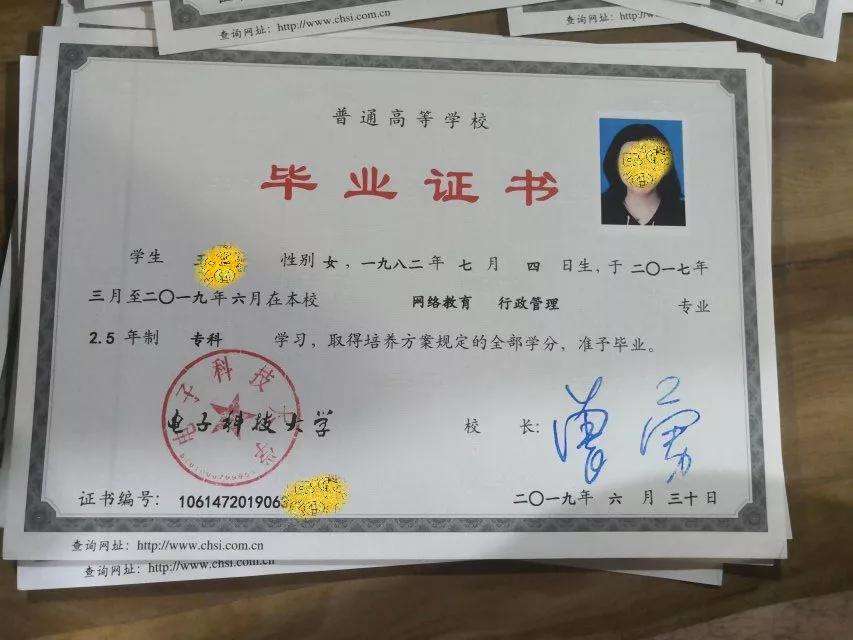 查询网址：http://www.chsi.com.cn
查询网址：http://w
普通高等学校
毕业证书
学生 性别 女，一九八二年 七 月 四 日生，于二〇一七年
三月至二〇一九年六月在本校 网络教育 行政管理 专业
2.5 年制 专科 学习，取得培养方案规定的全部学分，准予毕业。
电子科技大学
电子科技大学 校 长：
证书编号： 106147201906
二〇一九年 六 月 三十 日
查询网址：http://www.chsi.com.cn
查询网址：http://www.chsi.com.cn